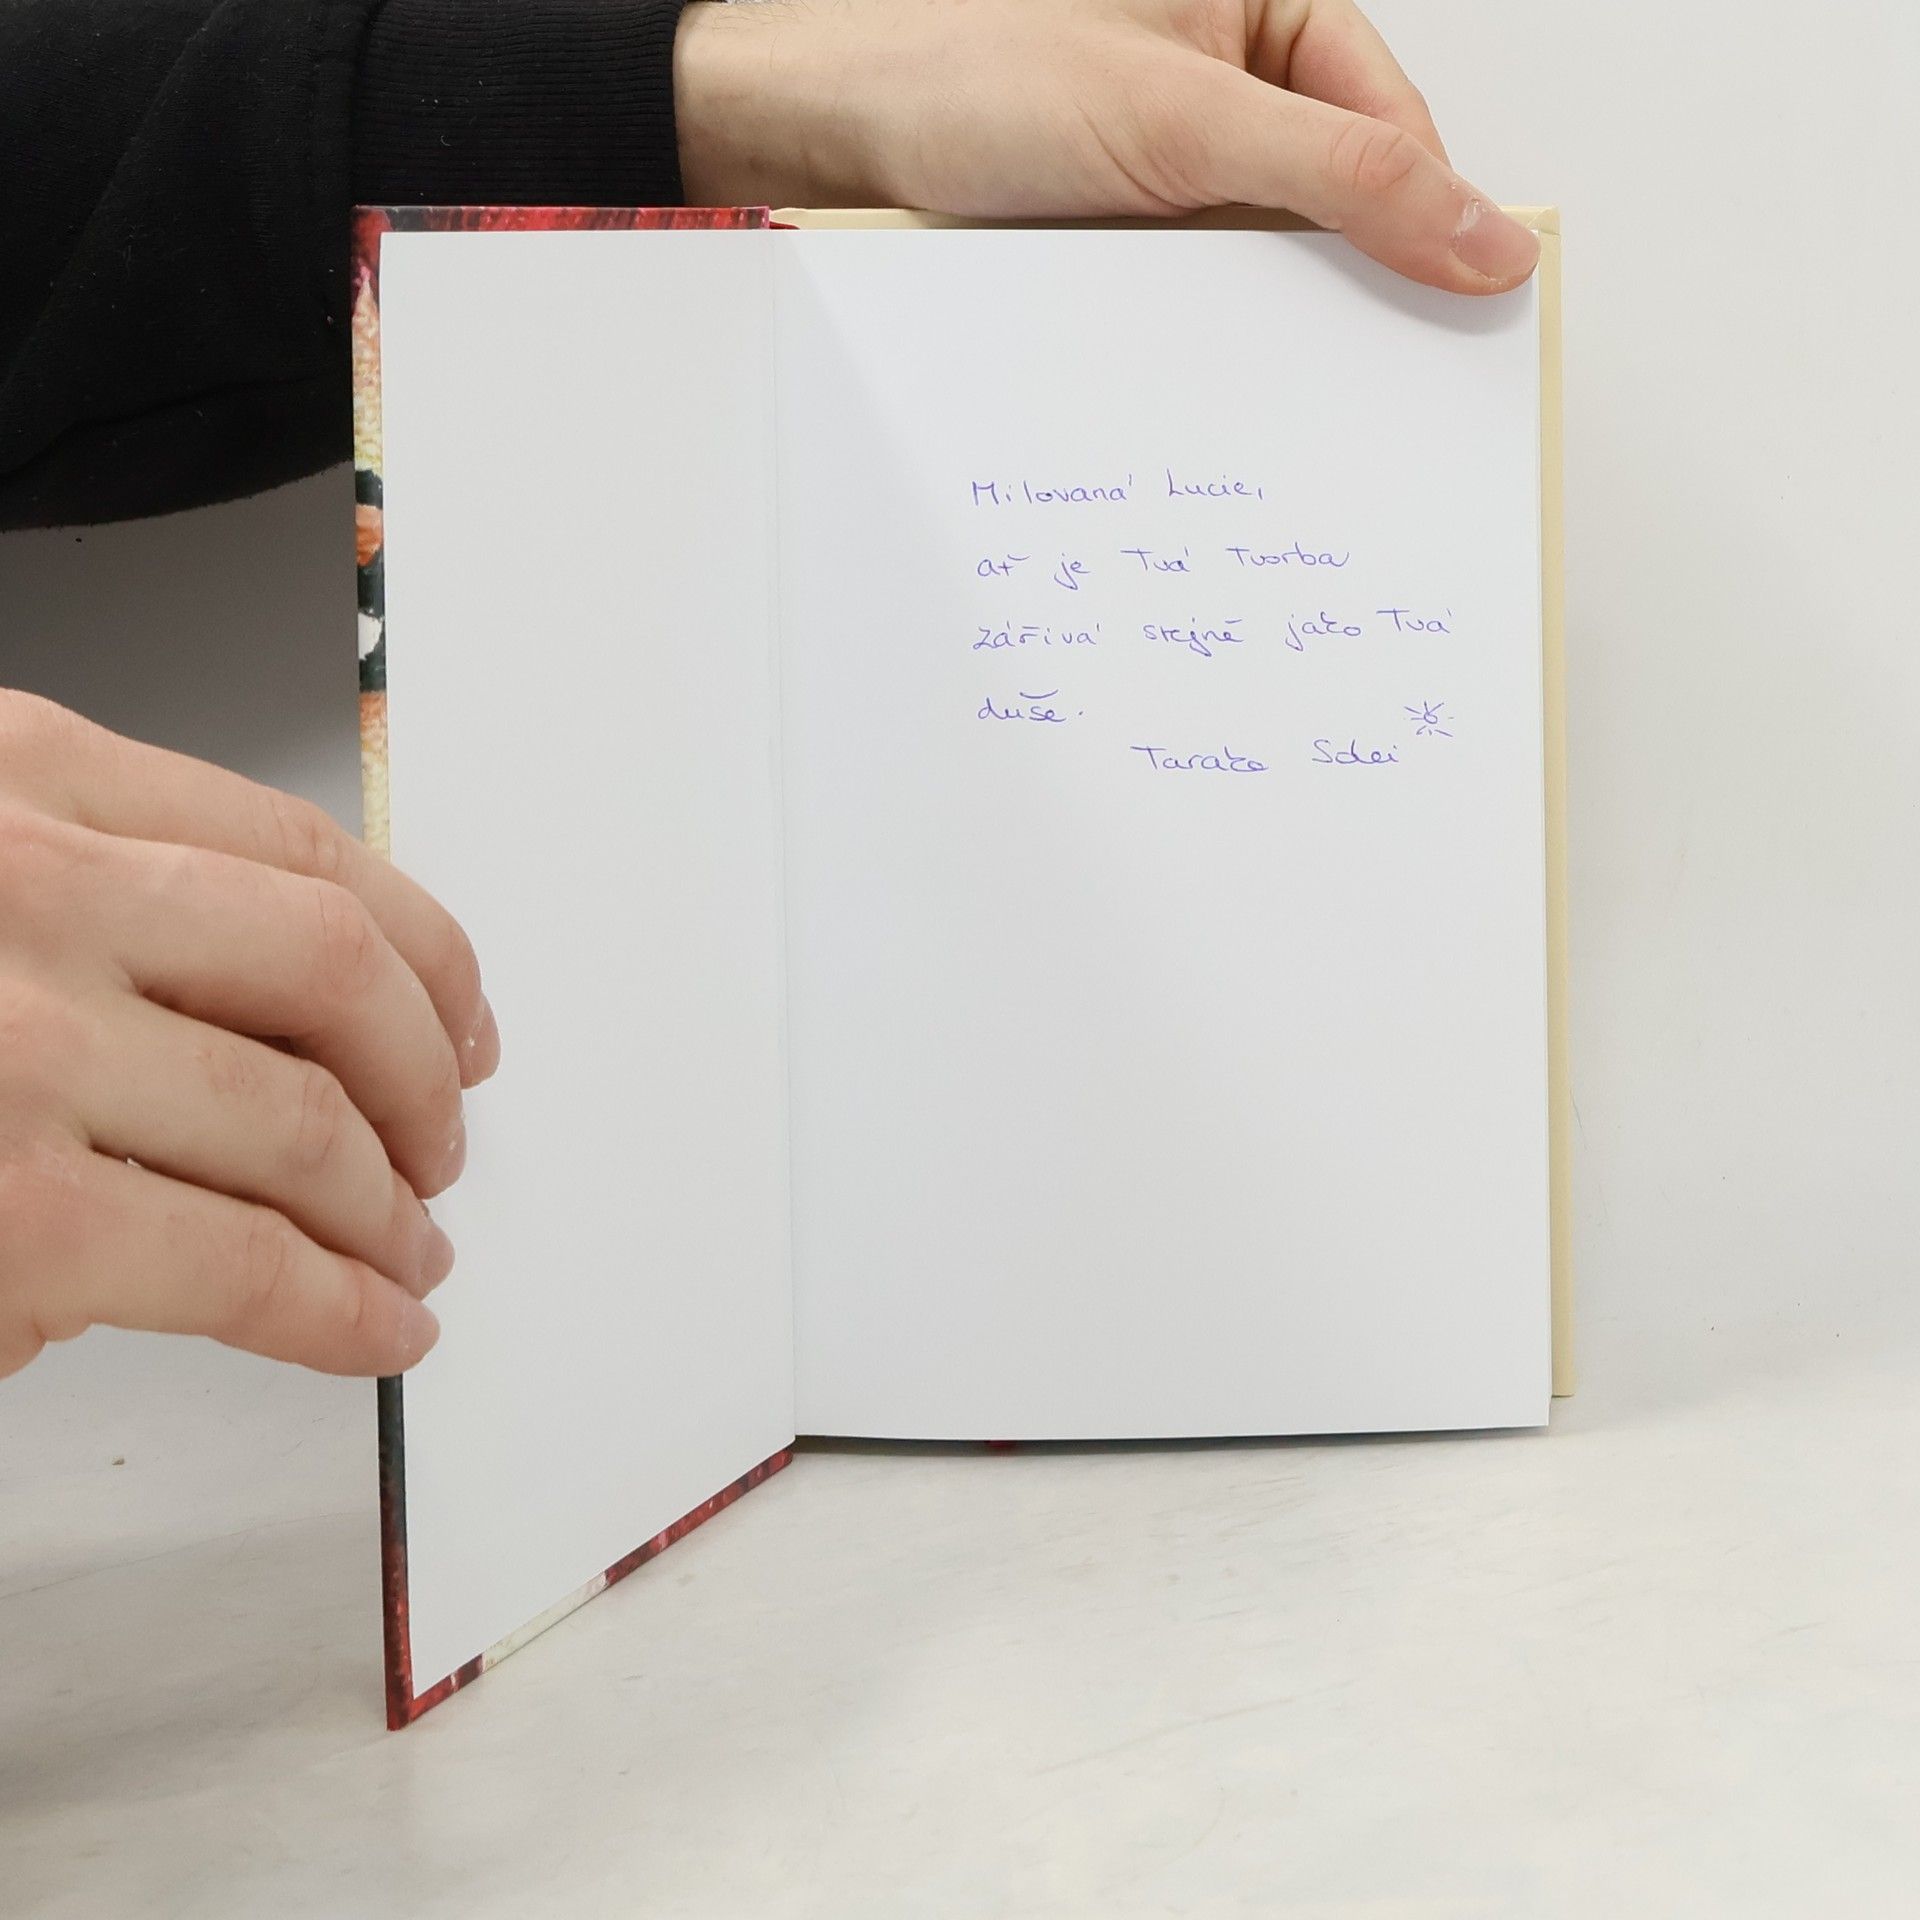 Milovaná Lucie,
ať je Tvá Tvorba
zářivá stejně jako Tvá
duše.